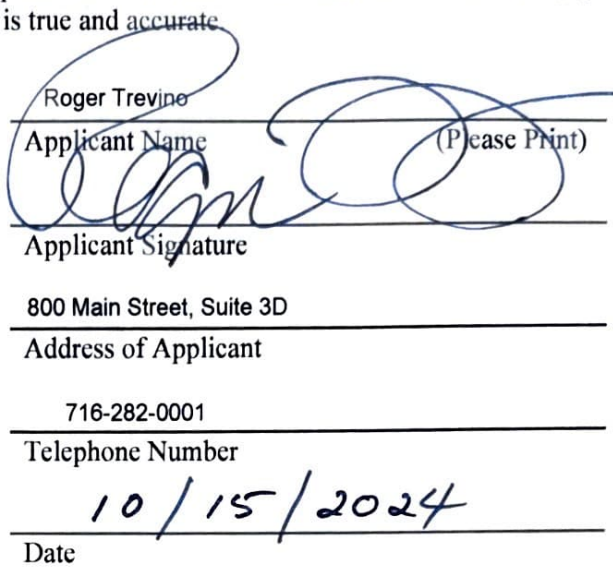 is true and accurate
Roger Trevino
Applicant Name (Please Print)
Applicant Signature
800 Main Street, Suite 3D
Address of Applicant
716-282-0001
Telephone Number
10/15/2024
Date